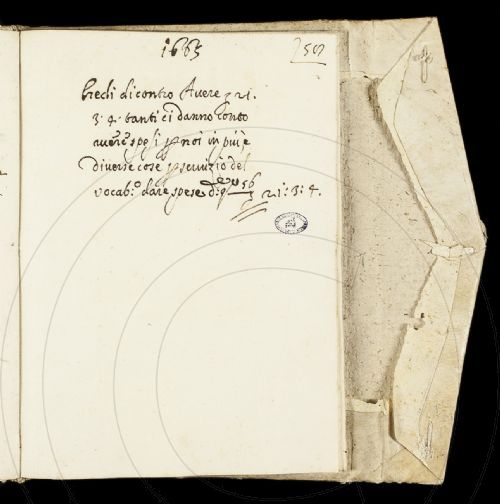 1663 250
hredi di contro Avere z 21.
3.4. tanti ci danno conto
avere spesi p noi in più e
diverse cose p servizio del
vocab.o dare spese d.o 56 21:3:4.